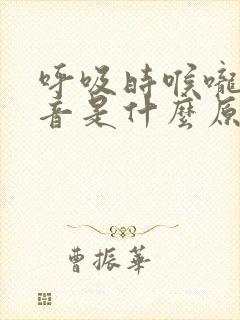 呼吸時喉嚨
音是什麼原
曹振華